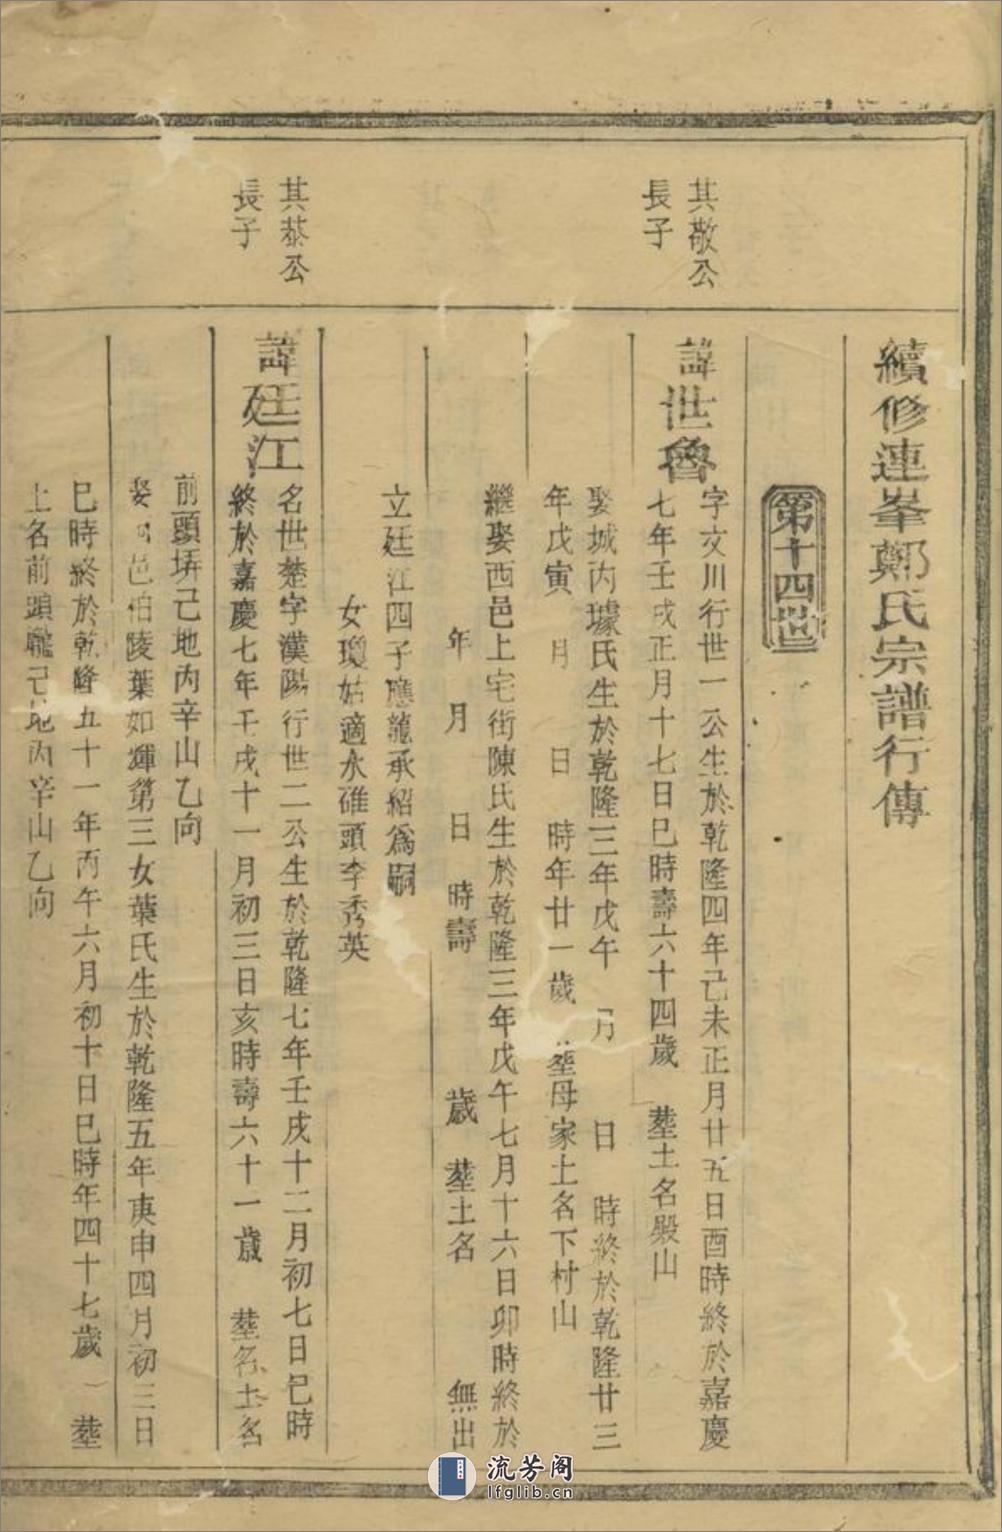 續修連峯鄭氏宗譜行傳
第十四世
其敬公
長子
諱世魯
字文川行世一公生於乾隆四年己未正月廿五日酉時終於嘉慶
七年壬戌正月十七日巳時壽六十四歲 塟土名殿山
娶城内璩氏生於乾隆三年戊午 月 日 時終於乾隆廿三
年戊寅 月 日 時年廿一歲 塟母家土名下村山
繼娶西邑上宅街陳氏生於乾隆三年戊午七月十六日卯時終於
年 月 日 時壽 歲 塟土名 無出
立廷江四子應龍承紹爲嗣
女瓊姑適水碓頭李秀英
其恭公
長子
諱廷江
名世楚字漢陽行世二公生於乾隆七年壬戌十二月初七日巳時
終於嘉慶七年壬戌十一月初三日亥時壽六十一歲 塟名土名
前頭塝己地丙辛山乙向
娶 邑伯陵葉如輝第三女葉氏生於乾隆五年庚申四月初三日
巳時終於乾隆五十一年丙午六月初十日巳時年四十七歲 塟
土名前頭 己地丙辛山乙向
流芳阁
lfglib.cn